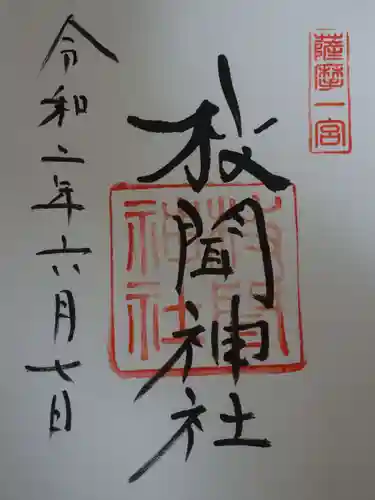 薩摩一宮
枚聞神社
枚聞神社
令和二年六月七日